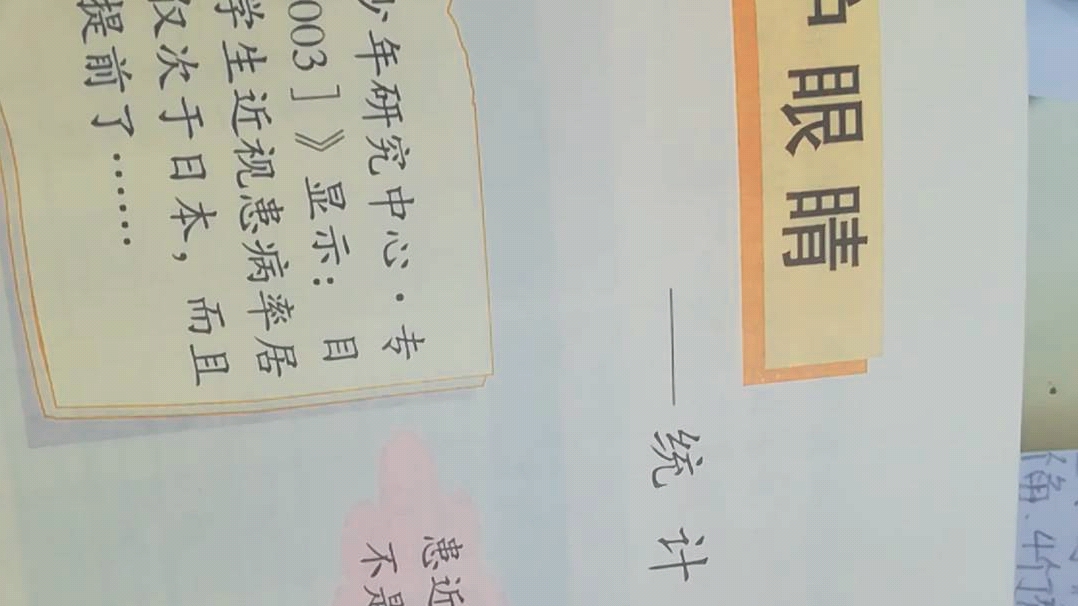 眼睛
——统计
少年研究中心·专
003]》显示：目
学生近视患病率居
仅次于日本，而且
提前了……
患近
不是